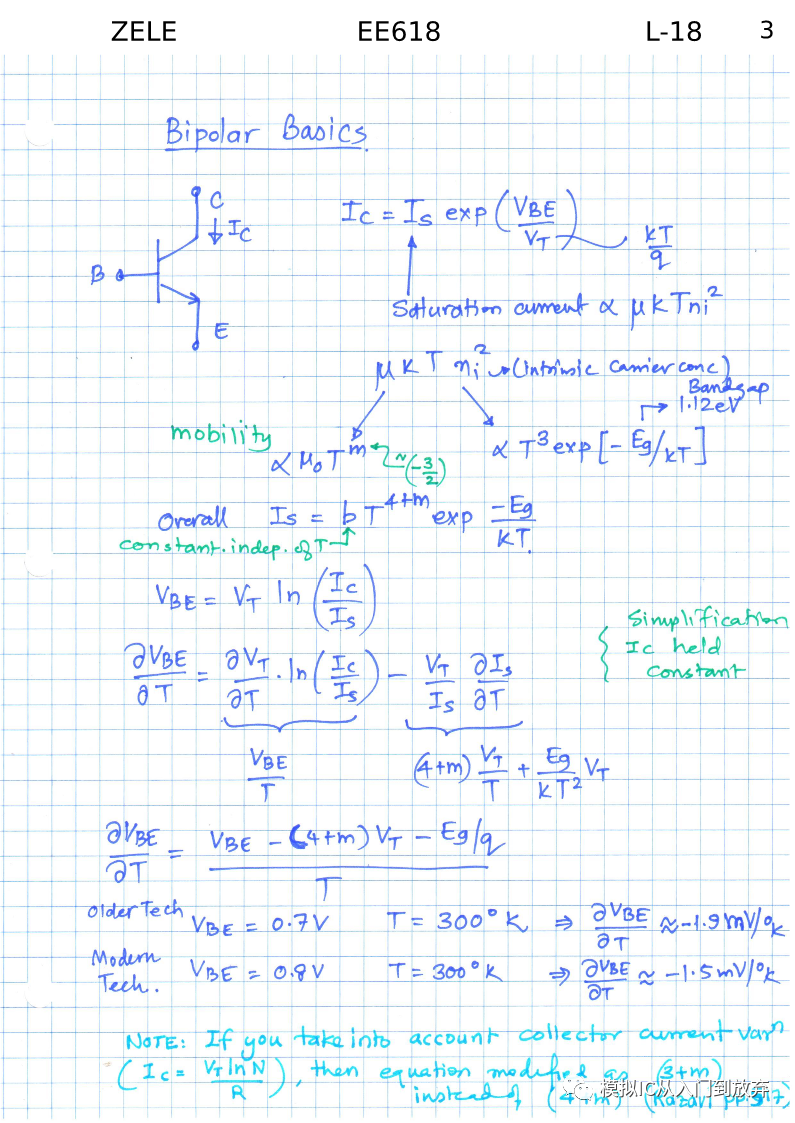 ZELE EE618 L-18 3
Bipolar Basics
C
↓ Ic
B
E
Ic = Is exp (VBE/VT) kT/q
Saturation current ∝ μkTni²
μkT ni² → (Intrinsic carrier conc)
Bandgap
→ 1.12eV
mobility ∝ μ₀T^m ≈(-3/2) ∝ T³ exp[-Eg/kT]
Overall Is = bT^(4+m) exp -Eg/kT
constant.indep.of T
VBE = VT ln (Ic/Is)
∂VBE/∂T = ∂VT/∂T · ln(Ic/Is) - VT/Is ∂Is/∂T
Simplification
Ic held
constant
VBE/T (4+m) VT/T + Eg/kT² VT
∂VBE/∂T = (VBE - (4+m)VT - Eg/q)/T
Older Tech VBE = 0.7V T = 300°K ⇒ ∂VBE/∂T ≈ -1.9mV/°K
Modern Tech. VBE = 0.8V T = 300°K ⇒ ∂VBE/∂T ≈ -1.5mV/°K
NOTE: If you take into account collector current varⁿ
(Ic = VT ln N/R), then equation modified as (3+m)
instead of (4+m) (Razavi pp.
模拟IC从入门到放弃